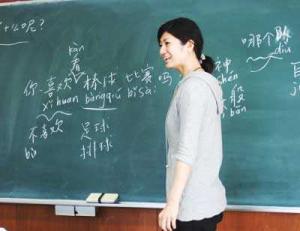 么呢?
kàn
看
你 喜欢 棒球 比赛 吗
xǐ huan bàngqiú bǐsài
不喜欢
bù
足球
排球
哪个队
duì
神
shén
bǎn